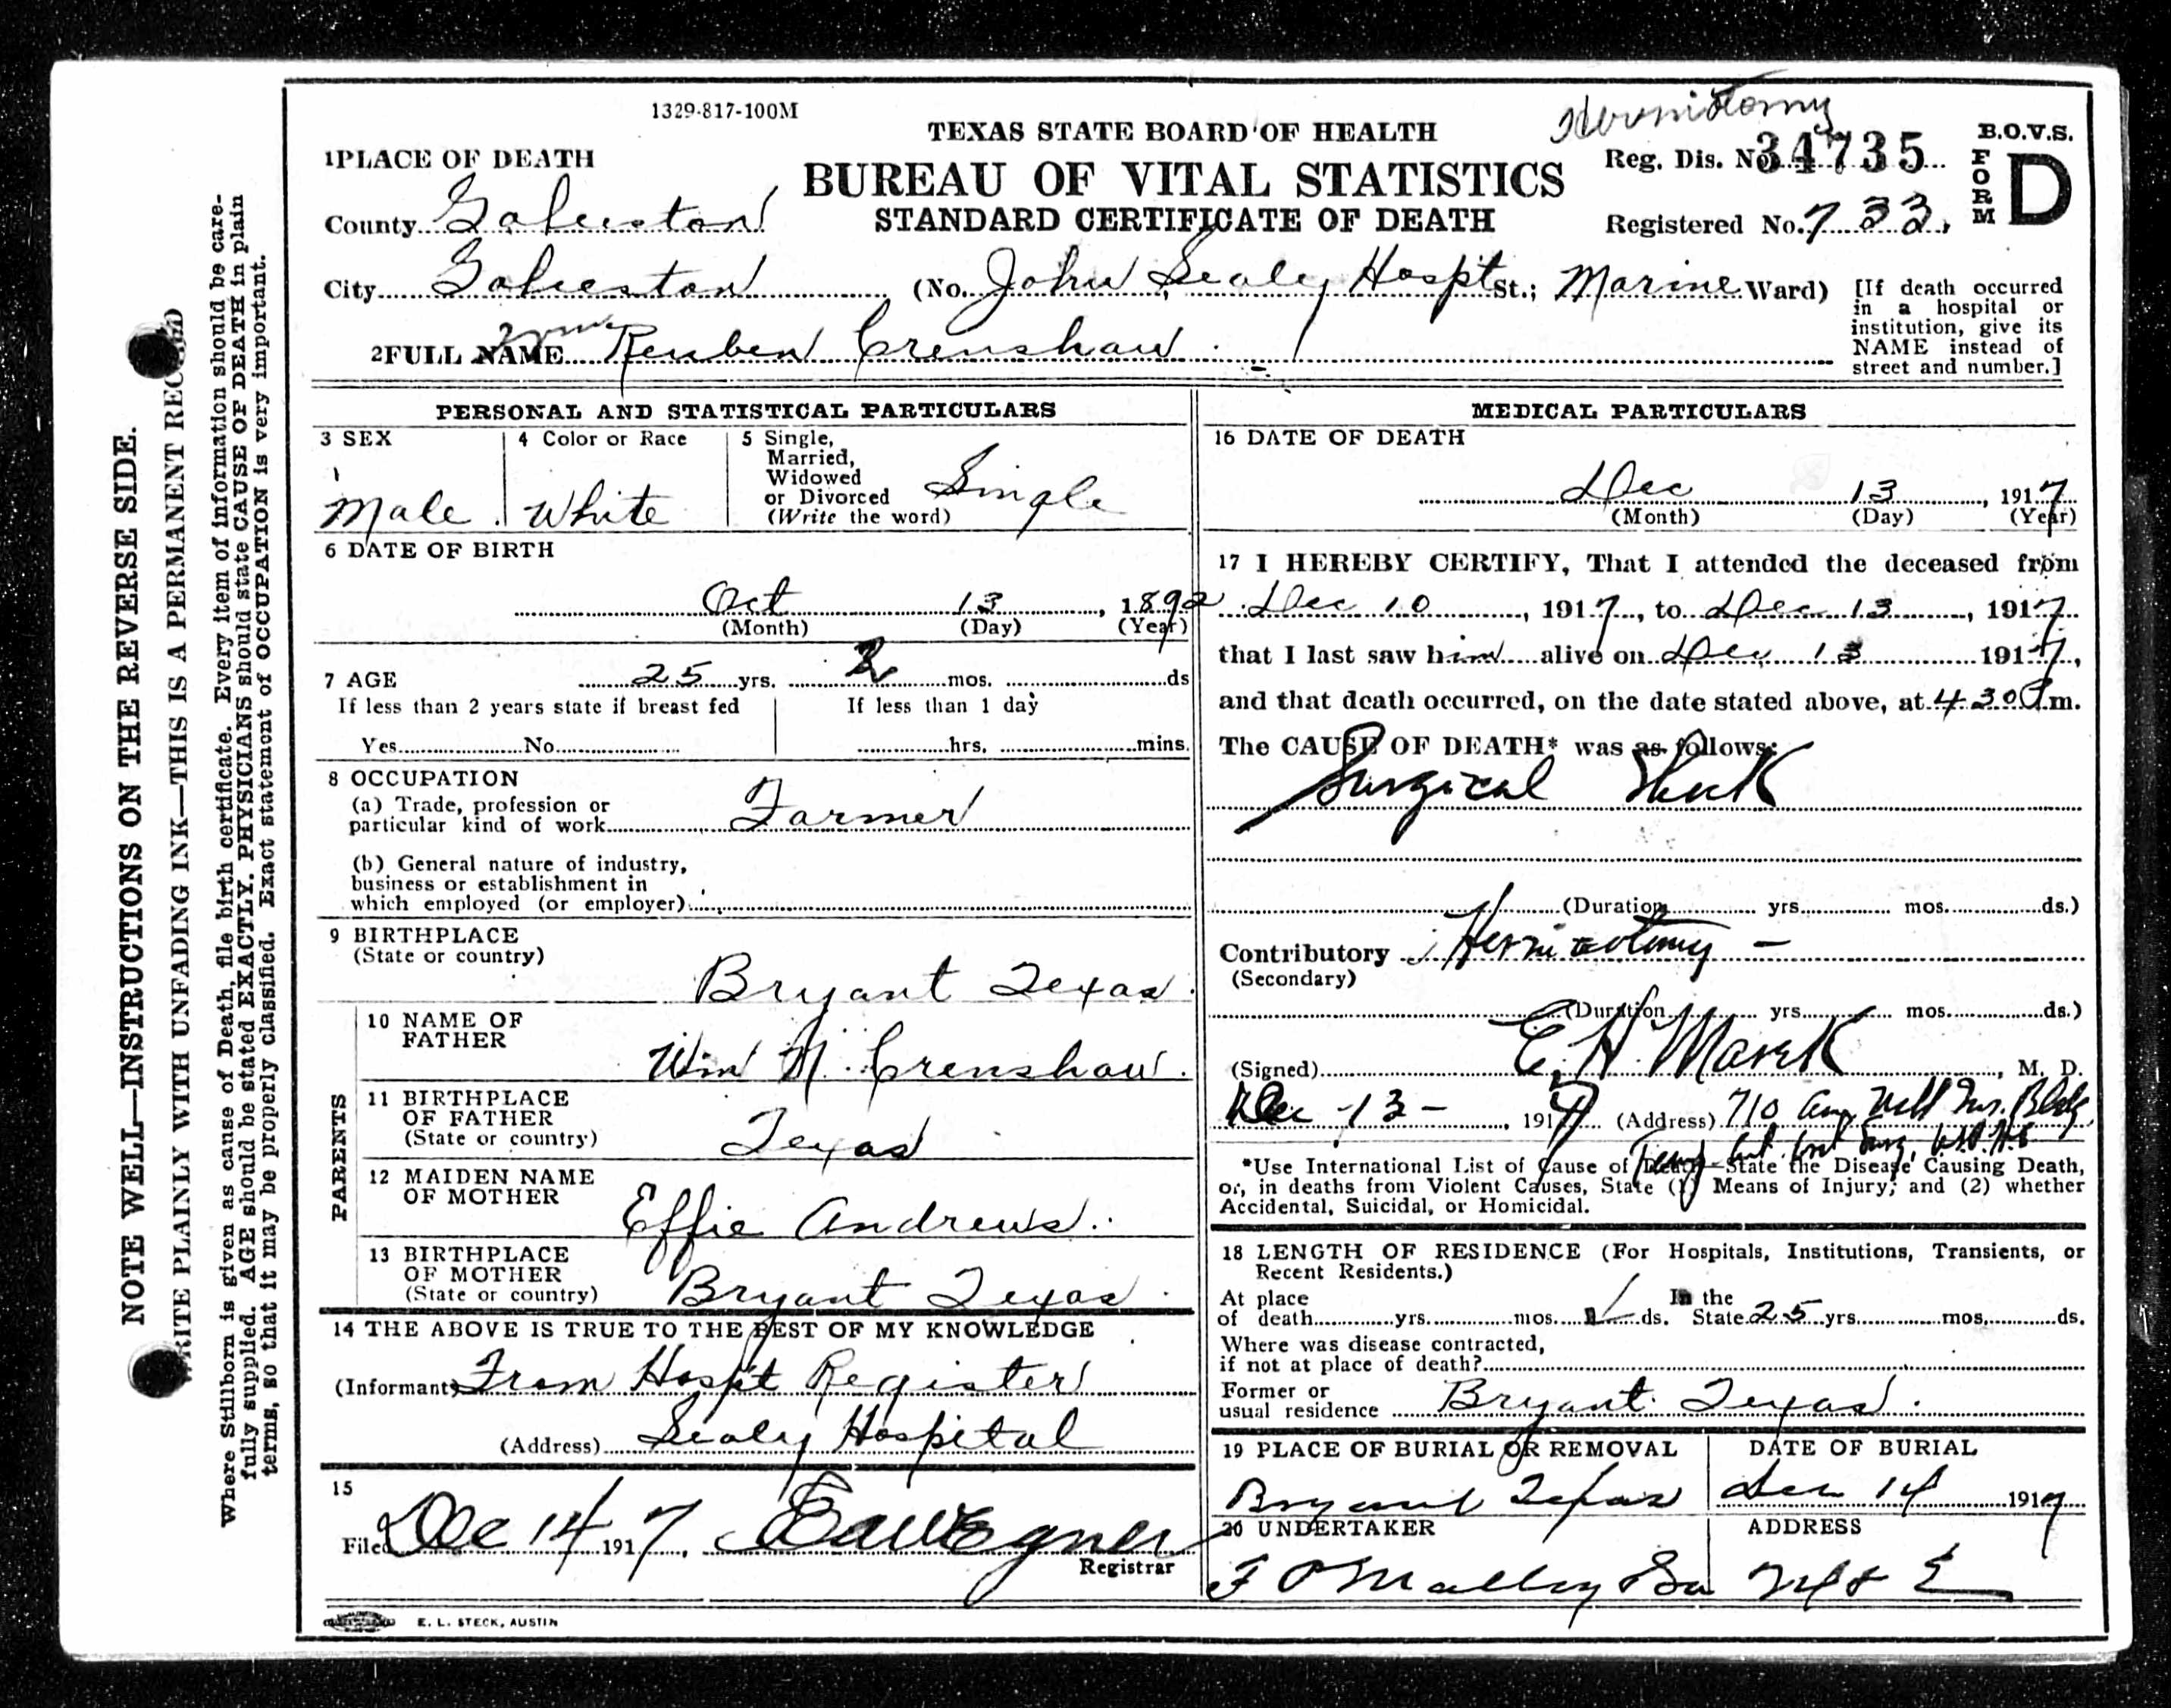 1329-817-100M
Herniotomy
TEXAS STATE BOARD OF HEALTH
BUREAU OF VITAL STATISTICS
STANDARD CERTIFICATE OF DEATH
Reg. Dis. No. 34735
Registered No. 733.
B.O.V.S.
FORM D
1 PLACE OF DEATH
County Galveston
City Galveston (No. John Sealy Hospt St.; Marine Ward)
[If death occurred in a hospital or institution, give its NAME instead of street and number.]
2 FULL NAME Wm Reuben Crenshaw
PERSONAL AND STATISTICAL PARTICULARS
3 SEX
Male
4 Color or Race
White
5 Single, Married, Widowed or Divorced (Write the word)
Single
6 DATE OF BIRTH
Oct 13, 1892
(Month) (Day) (Year)
7 AGE 25 yrs. 2 mos. ds
If less than 2 years state if breast fed
If less than 1 day
Yes No
hrs. mins.
8 OCCUPATION
(a) Trade, profession or
particular kind of work Farmer
(b) General nature of industry,
business or establishment in
which employed (or employer)
9 BIRTHPLACE
(State or country)
Bryant Texas
PARENTS
10 NAME OF FATHER
Wm M. Crenshaw.
11 BIRTHPLACE OF FATHER
(State or country)
Texas
12 MAIDEN NAME OF MOTHER
Effie Andrews.
13 BIRTHPLACE OF MOTHER
(State or country)
Bryant Texas
14 THE ABOVE IS TRUE TO THE BEST OF MY KNOWLEDGE
(Informant) From Hospt Register
(Address) Sealy Hospital
15
Filed Dec 14 1917,
Registrar
E. L. STECK, AUSTIN
MEDICAL PARTICULARS
16 DATE OF DEATH
Dec 13, 1917
(Month) (Day) (Year)
17 I HEREBY CERTIFY, That I attended the deceased from
Dec 10, 1917, to Dec 13, 1917
that I last saw him alive on Dec 13 1917,
and that death occurred, on the date stated above, at 4 30 P.m.
The CAUSE OF DEATH* was as follows:
Surgical Shock
(Duration yrs. mos. ds.)
Contributory Herniotomy -
(Secondary)
(Duration yrs. mos. ds.)
(Signed) E. H. Marek, M. D.
Dec -13- 1917 (Address) 710 Am Natl Ins. Bldg.
*Use International List of Cause of Death—State the Disease Causing Death,
or, in deaths from Violent Causes, State (1) Means of Injury; and (2) whether
Accidental, Suicidal, or Homicidal.
18 LENGTH OF RESIDENCE (For Hospitals, Institutions, Transients, or
Recent Residents.)
At place In the
of death yrs. mos. ds. State 25 yrs. mos. ds.
Where was disease contracted,
if not at place of death?
Former or
usual residence Bryant Texas.
19 PLACE OF BURIAL OR REMOVAL
Bryant Texas
DATE OF BURIAL
Dec 14 1917
20 UNDERTAKER
F O Malley
ADDRESS
NOTE WELL—INSTRUCTIONS ON THE REVERSE SIDE.
WRITE PLAINLY WITH UNFADING INK—THIS IS A PERMANENT RECORD
Where Stillborn is given as cause of Death, file birth certificate. Every item of information should be care-
fully supplied. AGE should be stated EXACTLY. PHYSICIANS should state CAUSE OF DEATH in plain
terms, so that it may be properly classified. Exact statement of OCCUPATION is very important.